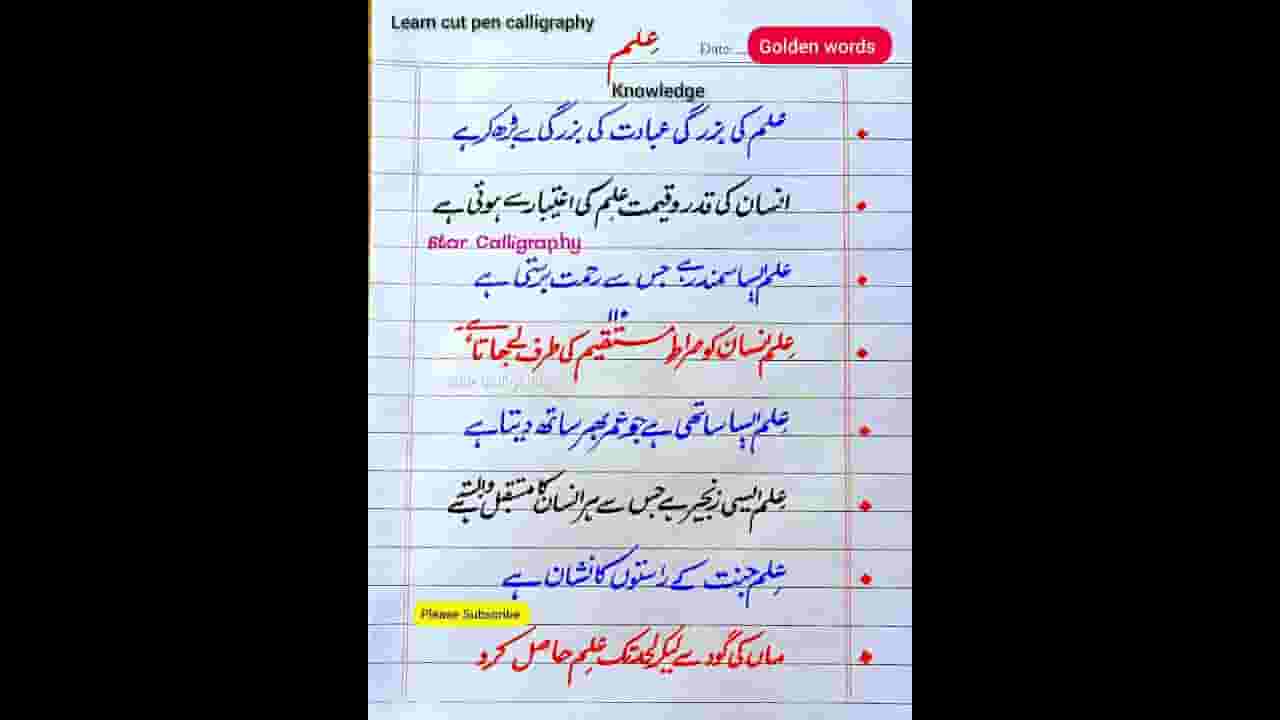 Learn cut pen calligraphy
عِلم
Date
Golden words
Knowledge
علم کی بزرگی عبادت کی بزرگی سے بڑھ کر ہے
انسان کی قدر و قیمت عِلم کی اعتبار سے ہوتی ہے
Star Calligraphy
علم ایسا سمندر ہے جس سے رحمت برستی ہے
عِلم انسان کو صراط مستقیم کی طرف لے جاتا ہے۔
عِلم ایسا ساتھی ہے جو عمر بھر ساتھ دیتا ہے
عِلم ایسی زنجیر ہے جس سے ہر انسان کا مستقبل وابستہ ہے
عِلم جنت کے راستوں کا نشان ہے
Please Subscribe
ماں کی گود سے لیکر لحد تک عِلم حاصل کرو